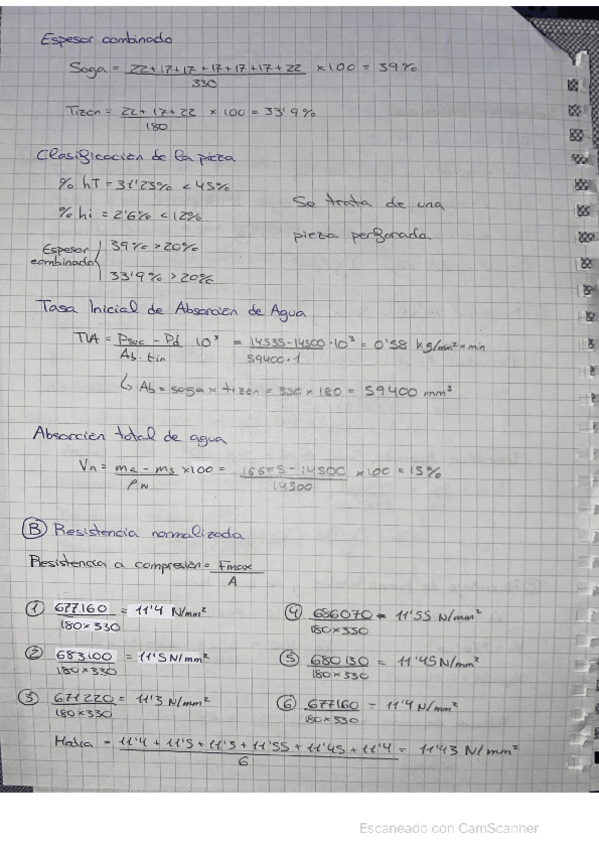 Espesor combinado
Soga = 22+17+17+17+17+17+22 / 330 ×100 = 39%
Tizon = 22+17+22 / 180 × 100 = 33'9%
Clasificacion de la pieza
% hT = 31'25% < 45%
% hi = 2'6% < 12%
Se trata de una
pieza perforada
Espesor combinado { 39% > 20%
33'9% > 20%
Tasa Inicial de Absorcion de Agua
TIA = Psuc - Pd / Ab. tin 10³ = 14535-14500 / 59400·1 ·10³ = 0'58 kg/mm² × min
↳ Ab = soga × tizon = 330 × 180 = 59400 mm²
Absorcion total de agua
Vn = ms - ms / pw ×100 = - 14500 / 14500 × 100 = 15%
Ⓑ Resistencia normalizada
Resistencia a compresion = Fmax / A
① 677160 / 180×330 = 11'4 N/mm²
② 683100 / 180×330 = 11'5 N/mm²
③ 671220 / 180×330 = 11'3 N/mm²
④ 686070 / 180×330 = 11'55 N/mm²
⑤ 680130 / 180×330 = 11'45 N/mm²
⑥ 677160 / 180×330 = 11'4 N/mm²
Media = 11'4 + 11'5 + 11'3 + 11'55 + 11'45 + 11'4 / 6 = 11'43 N/mm²
Escaneado con CamScanner